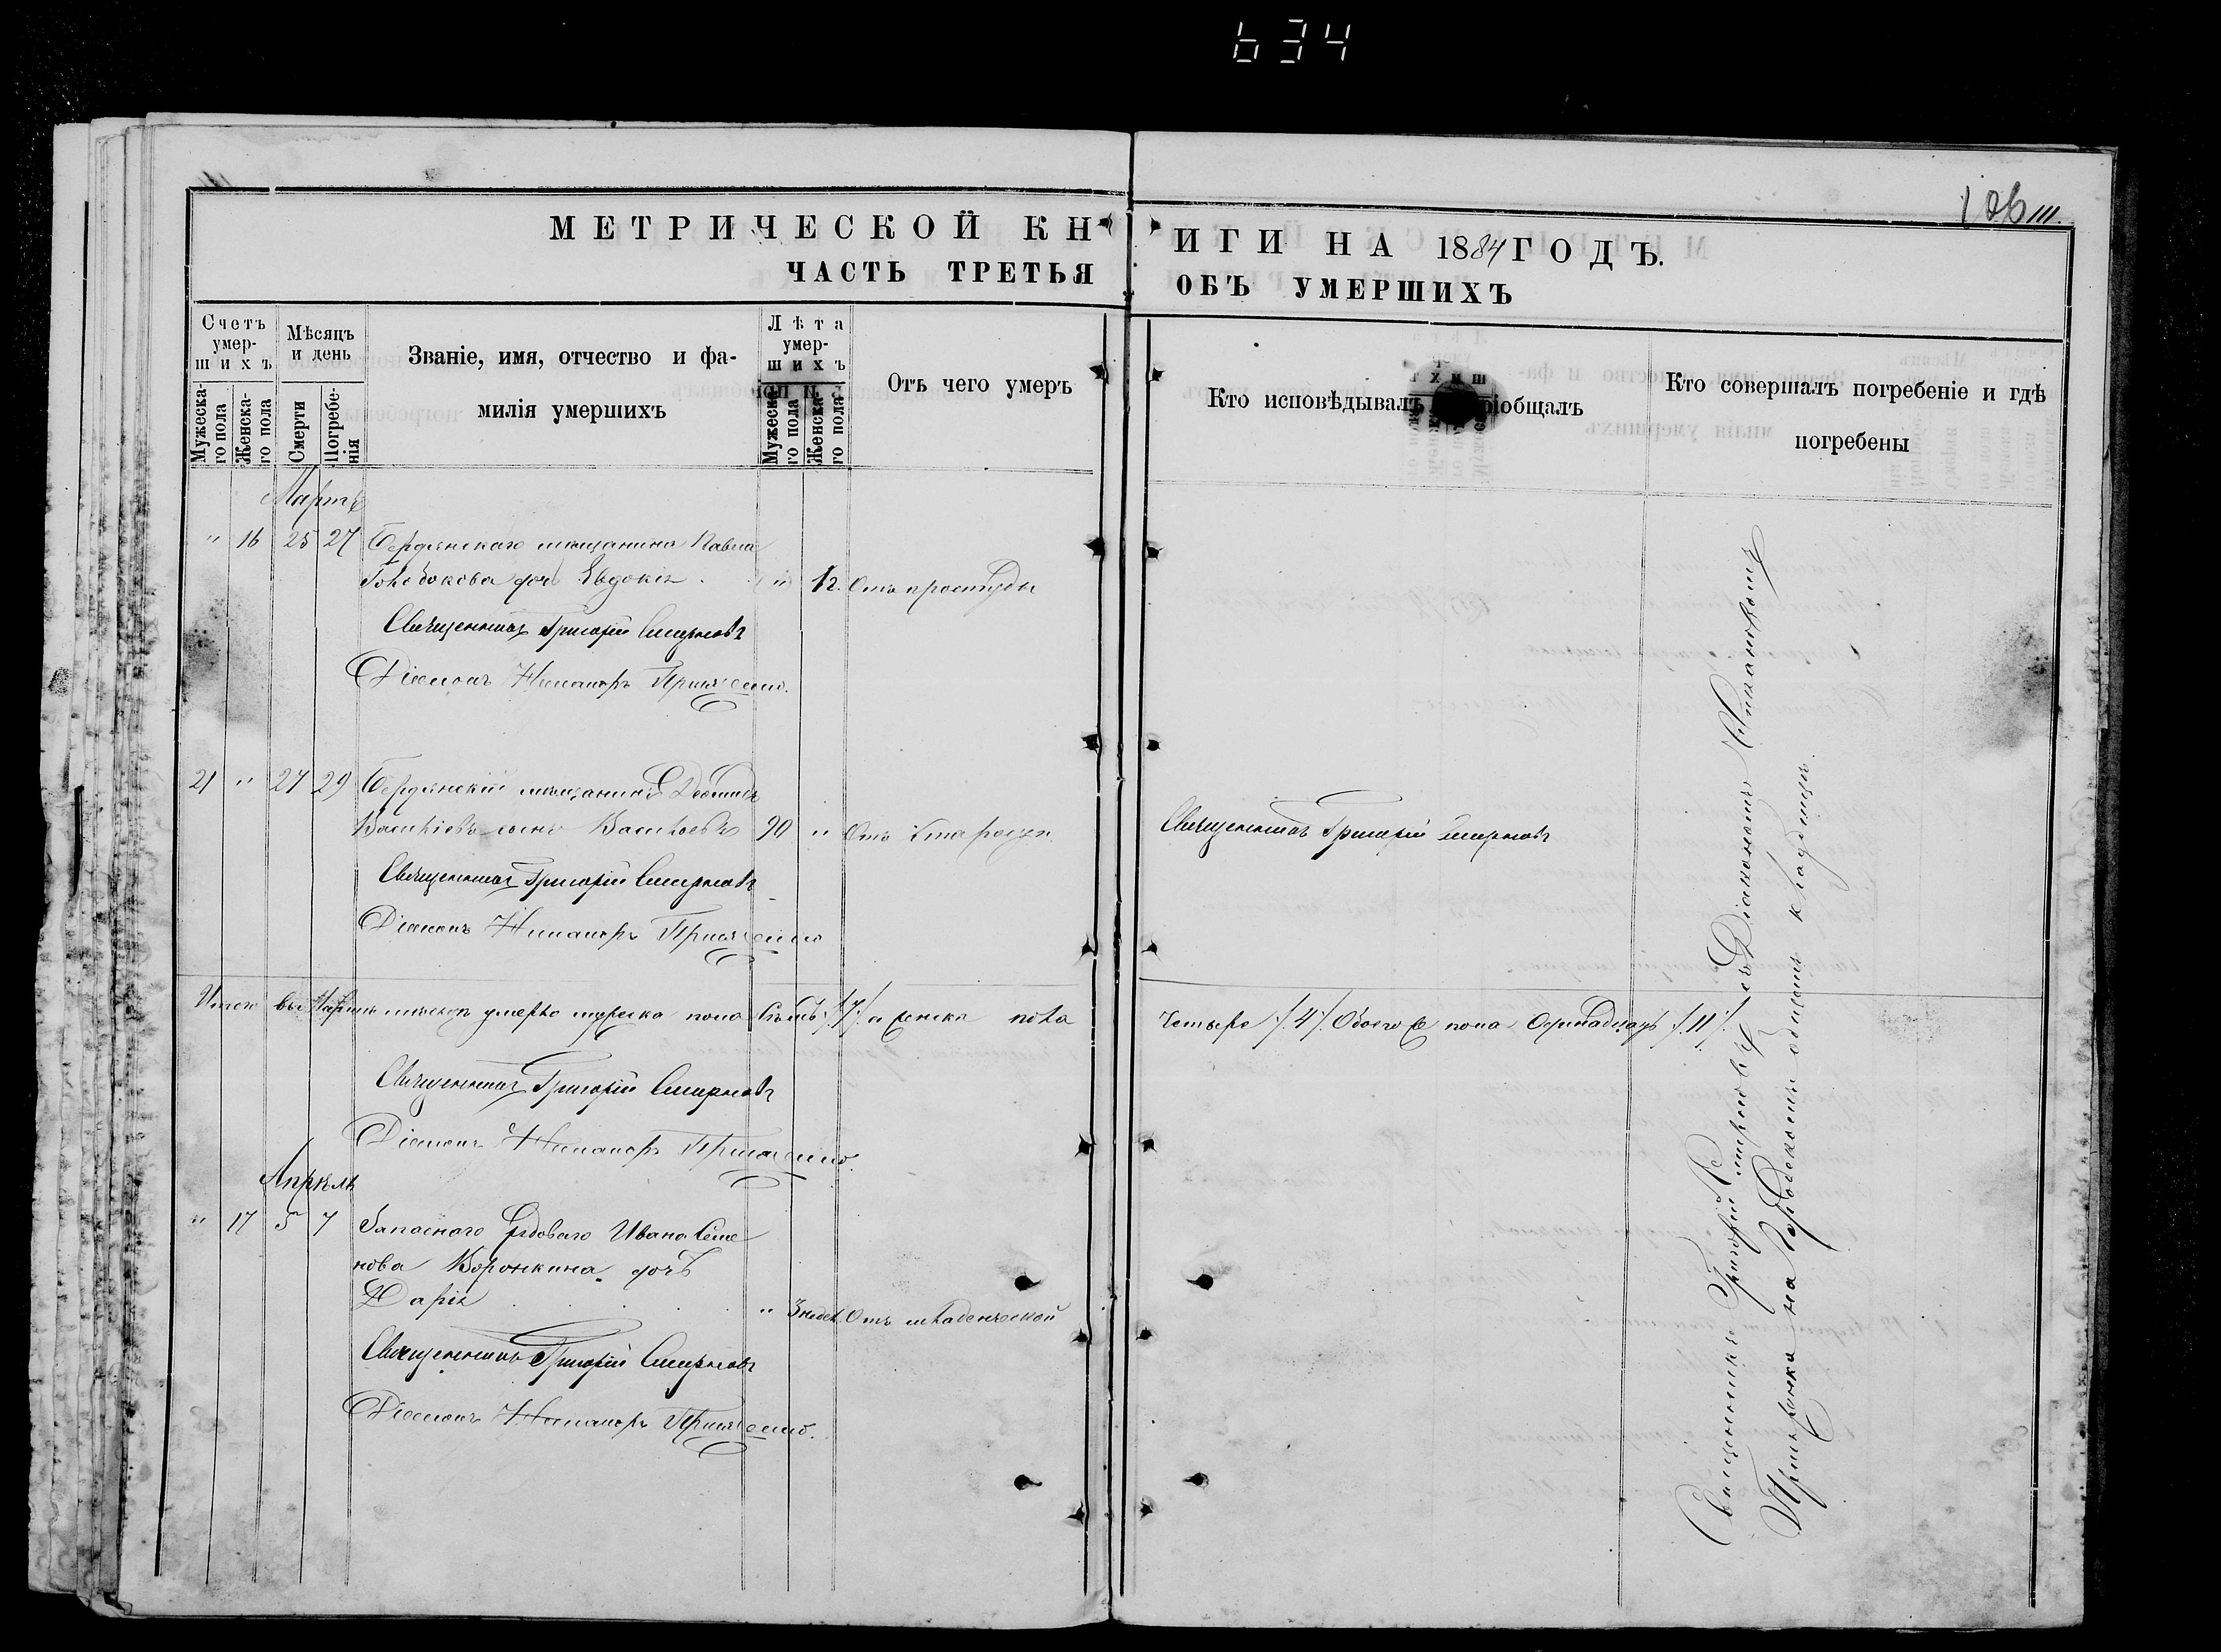 634
106 111.
МЕТРИЧЕСКОЙ КНИГИ НА 1884 ГОДЪ.
ЧАСТЬ ТРЕТЬЯ ОБЪ УМЕРШИХЪ
Счетъ умер-
шихъ
Мужеска-
го пола
Женска-
го пола
Мѣсяцъ
и день
Смерти
Погребе-
нія
Званіе, имя, отчество и фа-
милія умершихъ
Лѣта
умер-
шихъ
Мужеска-
го пола
Женска-
го пола
Отъ чего умеръ
Кто исповѣдывалъ пріобщалъ
Кто совершалъ погребеніе и гдѣ
погребены
Мартъ
" 16 25 27 Бердянскаго мѣщанина Павла
дочь Евдокія " 12. Отъ простуды
Священникъ Григорій Смирновъ
Діаконъ Никаноръ
21 " 27 29 Бердянскій мѣщанинъ
Василіевъ сынъ Васильевъ 90 " Отъ старости Священникъ Григорій Смирновъ
Священникъ Григорій Смирновъ
Діаконъ Никаноръ
Итого въ Мартѣ мѣсяцѣ умерло мужеска пола Семь /7/ а женска пола Четыре /4/ Обоего же пола Одинадцать /11/
Священникъ Григорій Смирновъ
Діаконъ Никаноръ
Апрѣль
" 17 5 7 Запаснаго Рядоваго Ивана Семе
нова Воронкина дочь
Дарія " 3 недѣл. Отъ младенческой
Священникъ Григорій Смирновъ
Діаконъ Никаноръ
Священникъ Григорій Смирновъ съ Діакономъ Никаноромъ
на Городскомъ общемъ кладбищѣ.